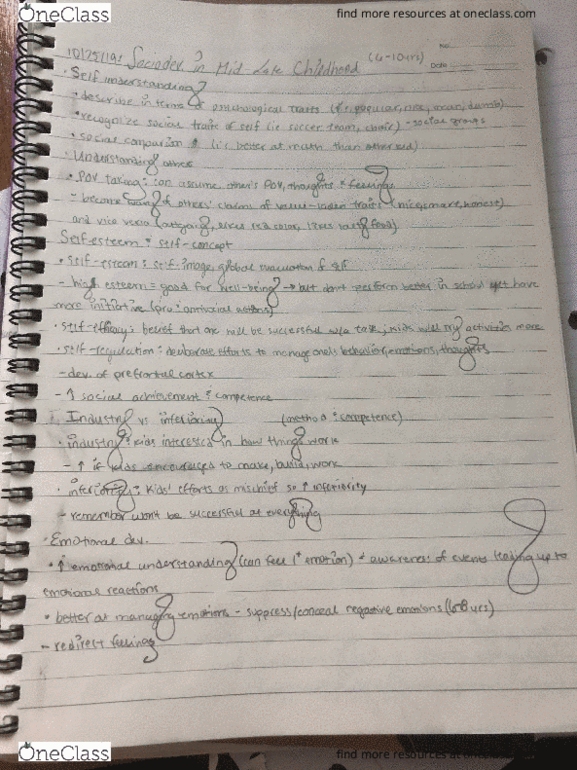 OneClass
find more resources at oneclass.com
10/25/19: Sociodev in Mid-Late Childhood (6-10yrs)
No.
Date
· Self understanding
• describe in terms of psychological traits (ex popular, nice, mean, dumb)
• recognize social traits of self (ie soccer team, choir) - social groups
• social comparison (is better at math than other kid)
· Understanding others
• POV taking: can assume other's POV, thoughts & feelings
- become of others' claims of traits (nice, smart, honest)
and vice versa (red color, likes food)
Self esteem & self-concept
• self-esteem: self-image, global evaluation of self
- high esteem = good for well-being → but don't perform better in school yet have
more initiative (pro & antisocial actions)
· self-efficacy: belief that one will be successful w/a task, kids will try activities more
· self-regulation: deliberate efforts to manage one's behavior, emotions, thoughts
- dev. of prefrontal cortex
- ↑ social achievement & competence
Industry vs inferiority (method & competence)
• industry: kids interested in how things work
- ↑ if kids encouraged to make, build, work
• inferiority: kids' efforts as mischief so ↑ inferiority
- remember won't be successful at everything
· Emotional dev.
• ↑ emotional understanding (can feel 1+ emotion) + awareness of events leading up to
emotional reactions
• better at managing emotions - suppress/conceal negative emotions (6-8 yrs)
- redirect feelings
OneClass
find more resources at oneclass.com